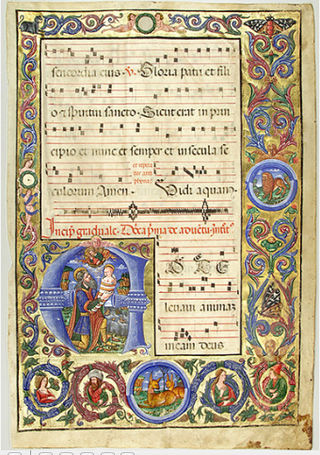 sericordia eius. V. Gloria patri et fili
o & spiritui sancto. Sicut erat in prin
cipio et nunc et semper et in secula se
culorum Amen. Vidi aquam.
graduale.
A D TE
leuaui animaz
meam deus